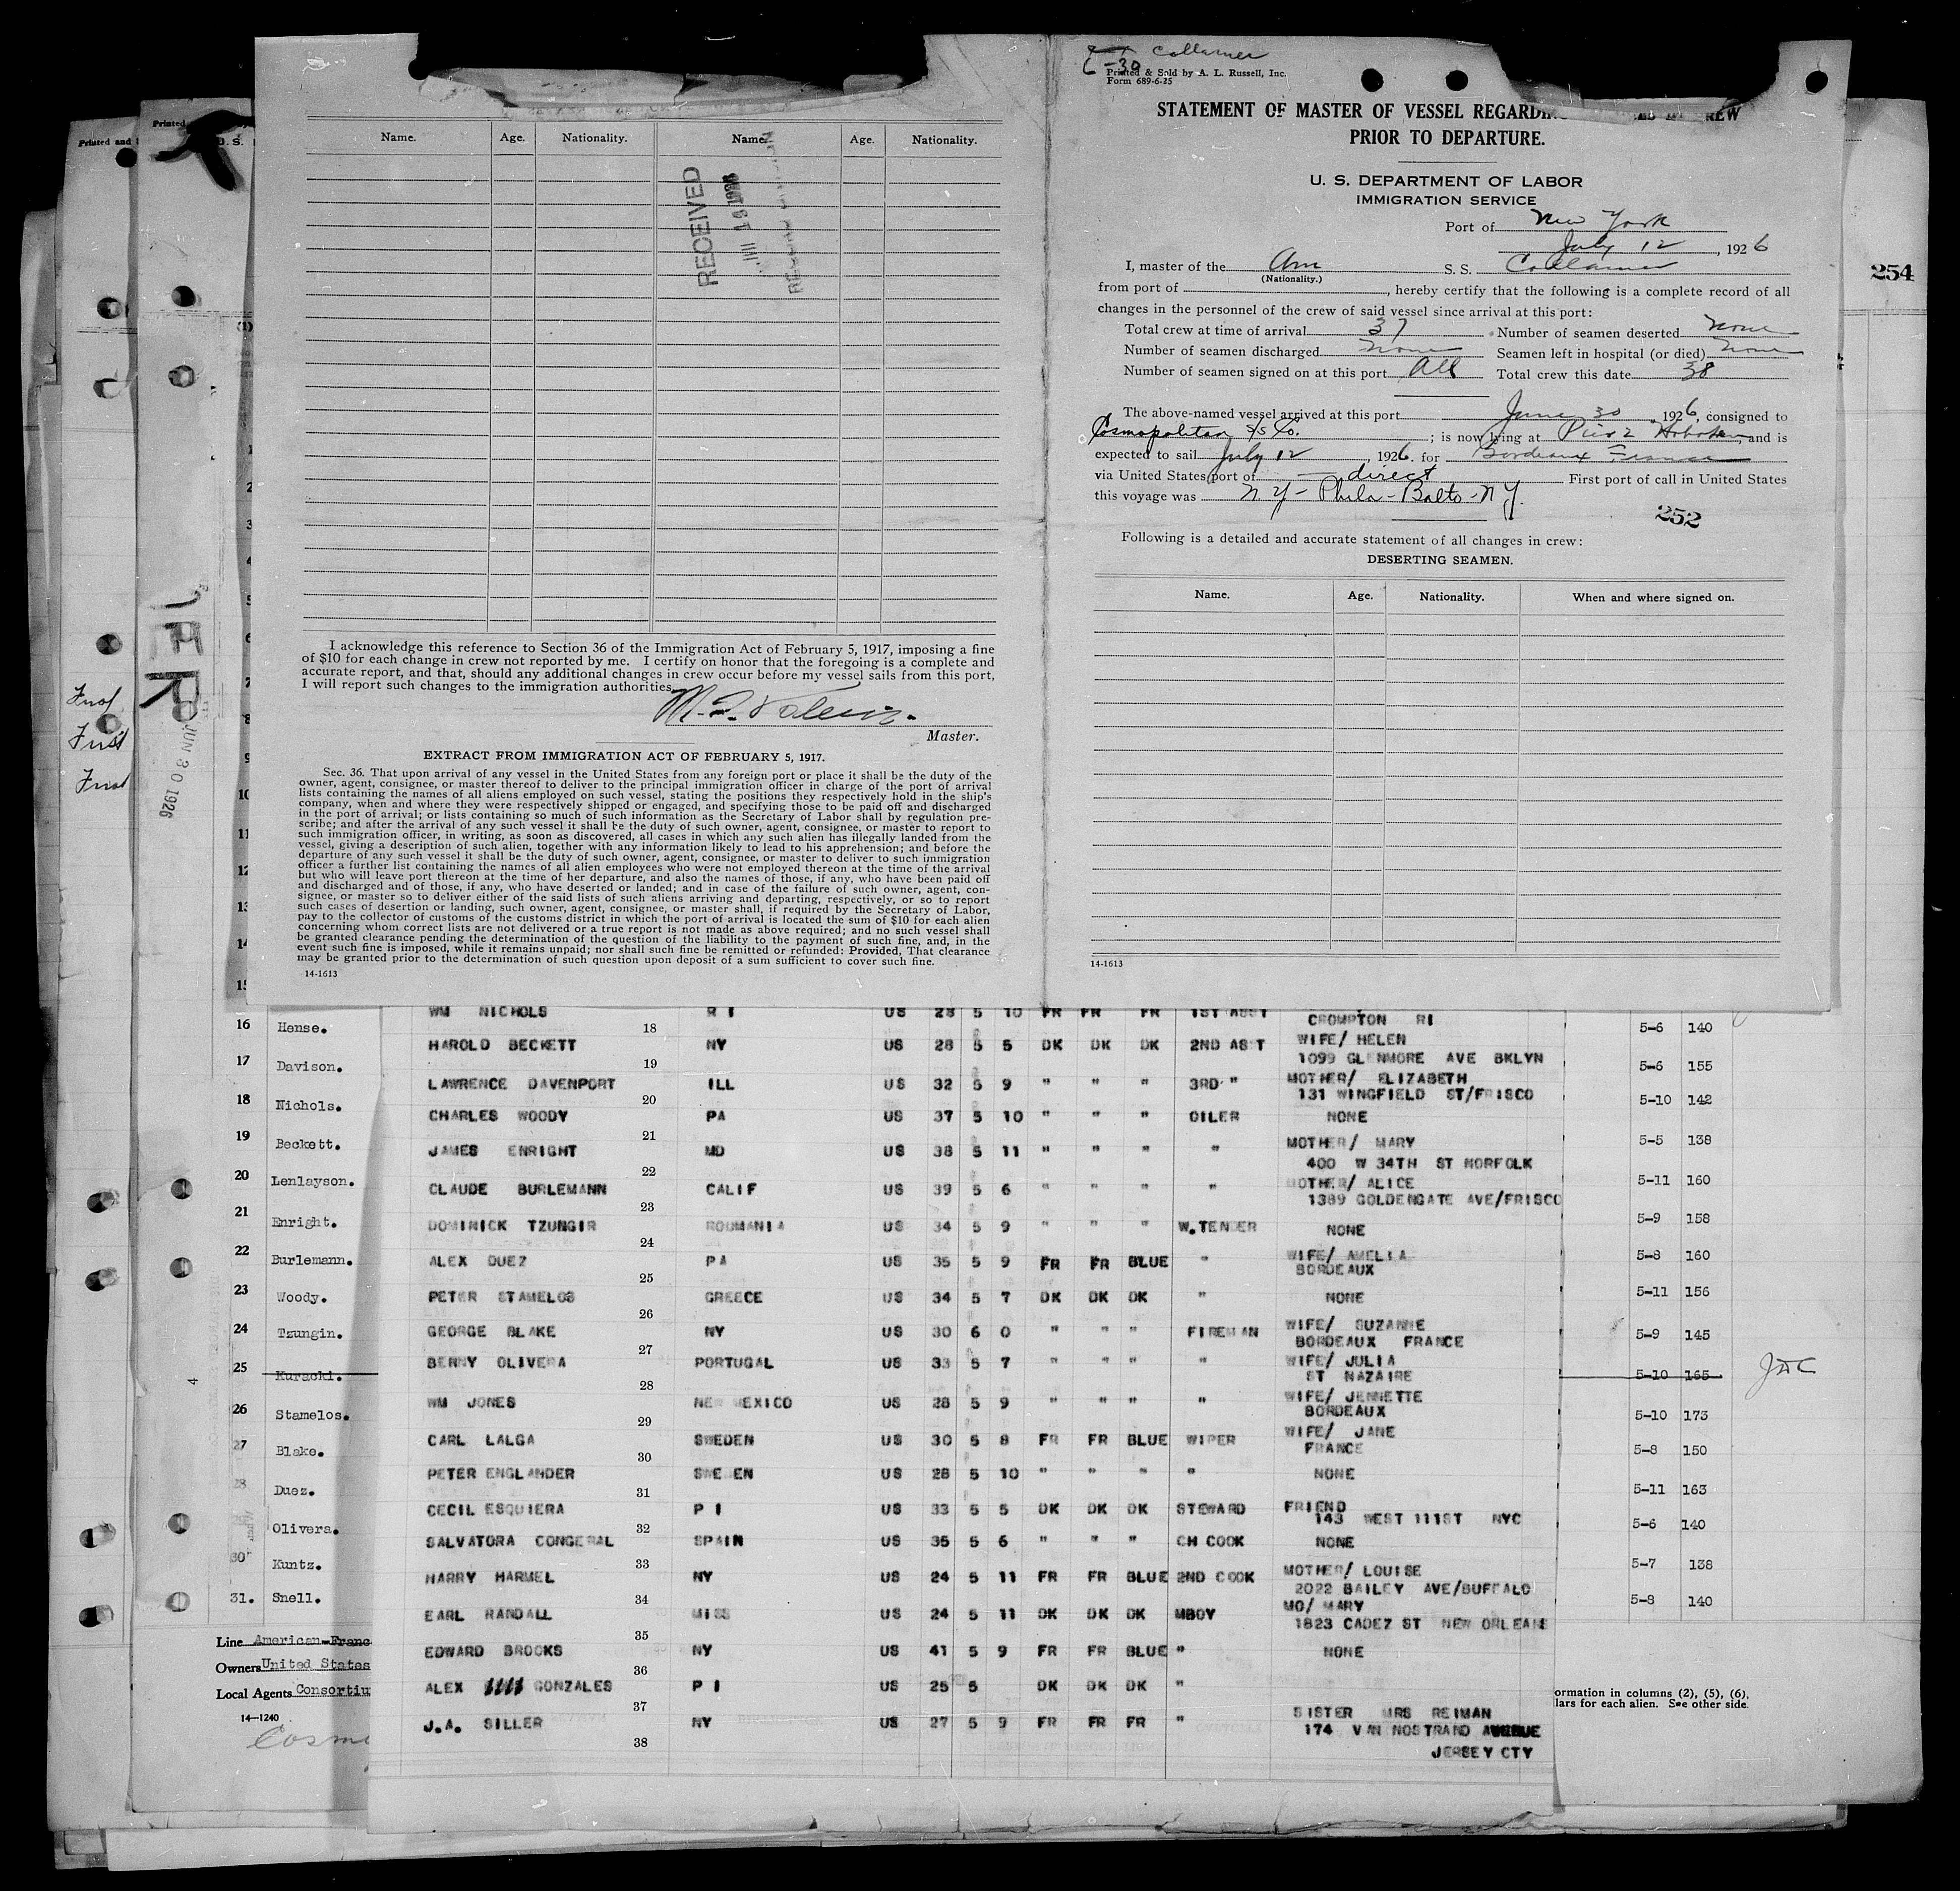 Collamer
6-30
Printed & Sold by A. L. Russell, Inc.
Form 689-6-25
STATEMENT OF MASTER OF VESSEL REGARDING REW
PRIOR TO DEPARTURE.
U. S. DEPARTMENT OF LABOR
IMMIGRATION SERVICE
Port of New York
July 12, 1926
I, master of the Am S. S. Collamer
(Nationality.)
from port of , hereby certify that the following is a complete record of all
changes in the personnel of the crew of said vessel since arrival at this port:
Total crew at time of arrival 37 Number of seamen deserted none
Number of seamen discharged none Seamen left in hospital (or died) none
Number of seamen signed on at this port All Total crew this date 38
The above-named vessel arrived at this port June 30, 1926, consigned to
Cosmopolitan S/S Co. ; is now lying at Pier 2 Hoboken, and is
expected to sail July 12, 1926. for Bordeaux France
via United States port of direct First port of call in United States
this voyage was N Y - Phila - Balto - N Y.
252
Following is a detailed and accurate statement of all changes in crew:
DESERTING SEAMEN.
Name. Age. Nationality. When and where signed on.
14-1613
Name. Age. Nationality. Name. Age. Nationality.
RECEIVED
I acknowledge this reference to Section 36 of the Immigration Act of February 5, 1917, imposing a fine
of $10 for each change in crew not reported by me. I certify on honor that the foregoing is a complete and
accurate report, and that, should any additional changes in crew occur before my vessel sails from this port,
I will report such changes to the immigration authorities.
Master.
EXTRACT FROM IMMIGRATION ACT OF FEBRUARY 5, 1917.
Sec. 36. That upon arrival of any vessel in the United States from any foreign port or place it shall be the duty of the
owner, agent, consignee, or master thereof to deliver to the principal immigration officer in charge of the port of arrival
lists containing the names of all aliens employed on such vessel, stating the positions they respectively hold in the ship's
company, when and where they were respectively shipped or engaged, and specifying those to be paid off and discharged
in the port of arrival; or lists containing so much of such information as the Secretary of Labor shall by regulation pre-
scribe; and after the arrival of any such vessel it shall be the duty of such owner, agent, consignee, or master to report to
such immigration officer, in writing, as soon as discovered, all cases in which any such alien has illegally landed from the
vessel, giving a description of such alien, together with any information likely to lead to his apprehension; and before the
departure of any such vessel it shall be the duty of such owner, agent, consignee, or master to deliver to such immigration
officer a further list containing the names of all alien employees who were not employed thereon at the time of the arrival
but who will leave port thereon at the time of her departure, and also the names of those, if any, who have been paid off
and discharged and of those, if any, who have deserted or landed; and in case of the failure of such owner, agent, con-
signee, or master so to deliver either of the said lists of such aliens arriving and departing, respectively, or so to report
such cases of desertion or landing, such owner, agent, consignee, or master shall, if required by the Secretary of Labor,
pay to the collector of customs of the customs district in which the port of arrival is located the sum of $10 for each alien
concerning whom correct lists are not delivered or a true report is not made as above required; and no such vessel shall
be granted clearance pending the determination of the question of the liability to the payment of such fine, and, in the
event such fine is imposed, while it remains unpaid; nor shall such fine be remitted or refunded: Provided, That clearance
may be granted prior to the determination of such question upon deposit of a sum sufficient to cover such fine.
14-1613
254
Printed and
Printed
U. S.
JUN 30 1926
1
2
3
4
5
6
7
8
9
10
11
12
13
14
15
16 Hense.
17 Davison.
18 Nichols.
19 Beckett.
20 Lenlayson.
21 Enright.
22 Burlemann.
23 Woody.
24 Tzungin.
25 Kuracki.
26 Stamelos.
27 Blake.
28 Duez.
Olivera.
30 Kuntz.
31. Snell.
Line American-Franc
Owners United States
Local Agents Consortiu
14-1240
WM NICHOLS R I US 28 5 10 FR FR FR 1ST ASST CROMPTON RI
18
HAROLD BECKETT NY US 28 5 5 DK DK DK 2ND ASST WIFE/ HELEN
19 1099 GLENMORE AVE BKLYN
LAWRENCE DAVENPORT ILL US 32 5 9 " " " 3RD " MOTHER/ ELIZABETH
20 131 WINGFIELD ST/FRISCO
CHARLES WOODY PA US 37 5 10 " " " OILER NONE
21
JAMES ENRIGHT MD US 38 5 11 " " " " MOTHER/ MARY
22 400 W 34TH ST NORFOLK
CLAUDE BURLEMANN CALIF US 39 5 6 " " " " MOTHER/ ALICE
23 1389 GOLDENGATE AVE/FRISCO
DOMINICK TZUNGIR ROUMANIA US 34 5 9 " " " W.TENDER NONE
24
ALEX DUEZ PA US 35 5 9 FR FR BLUE " WIFE/ AMELIA
25 BORDEAUX
PETER STAMELOS GREECE US 34 5 7 DK DK DK " NONE
26
GEORGE BLAKE NY US 30 6 0 " " " FIREMAN WIFE/ SUZANNE
27 BORDEAUX FRANCE
BENNY OLIVERA PORTUGAL US 33 5 7 " " " " WIFE/ JULIA
28 ST NAZAIRE
WM JONES NEW MEXICO US 28 5 9 " " " " WIFE/ JENNETTE
29 BORDEAUX
CARL LALGA SWEDEN US 30 5 8 FR FR BLUE WIPER WIFE/ JANE
30 FRANCE
PETER ENGLANDER SWEDEN US 28 5 10 " " " " NONE
31
CECIL ESQUIERA P I US 33 5 5 DK DK DK STEWARD FRIEND
32 143 WEST 111ST NYC
SALVATORA CONGERAL SPAIN US 35 5 6 " " " CH COOK NONE
33
HARRY HARMEL NY US 24 5 11 FR FR BLUE 2ND COOK MOTHER/ LOUISE
34 2022 BAILEY AVE/BUFFALO
EARL RANDALL MISS US 24 5 11 DK DK DK MBOY MO/ MARY
35 1823 CADEZ ST NEW ORLEANS
EDWARD BROOKS NY US 41 5 9 FR FR BLUE " NONE
36
ALEX GONZALES P I US 25 5 DK DK DK "
37
J.A. SILLER NY US 27 5 9 FR FR FR " SISTER MRS REIMAN
38 174 VAN NOSTRAND AVENUE
JERSEY CTY
5-6 140
5-6 155
5-10 142
5-5 138
5-11 160
5-9 158
5-8 160
5-11 156
5-9 145
5-10 165
5-10 173
5-8 150
5-11 163
5-6 140
5-7 138
5-8 140
ormation in columns (2), (5), (6),
lars for each alien. See other side.